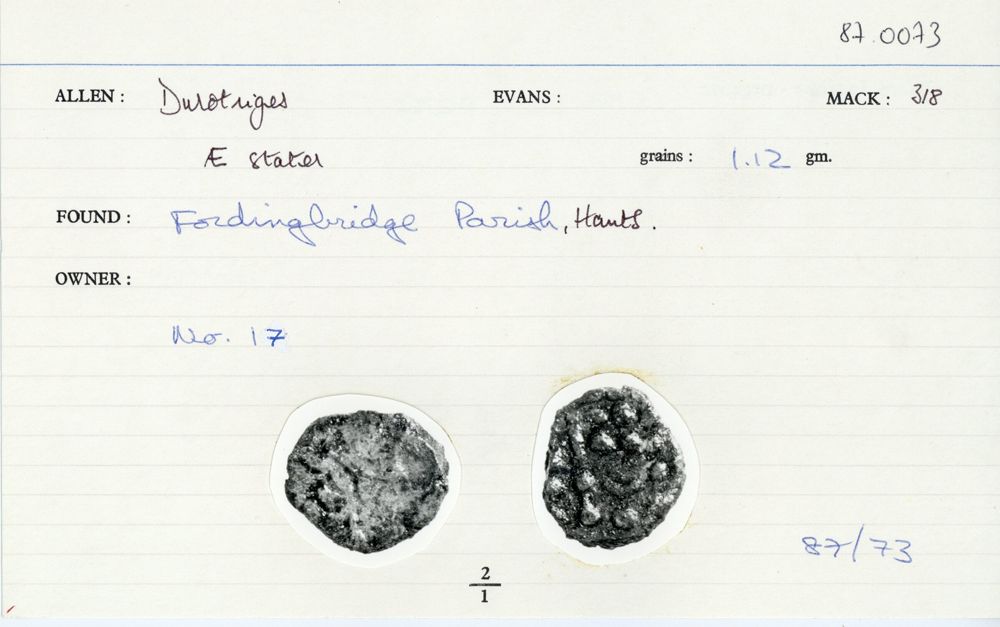 87.0073
ALLEN : Durotriges EVANS : MACK : 318
Æ stater grains : 1.12 gm.
FOUND : Fordingbridge Parish, Hants.
OWNER :
No. 17
87/73
2
1